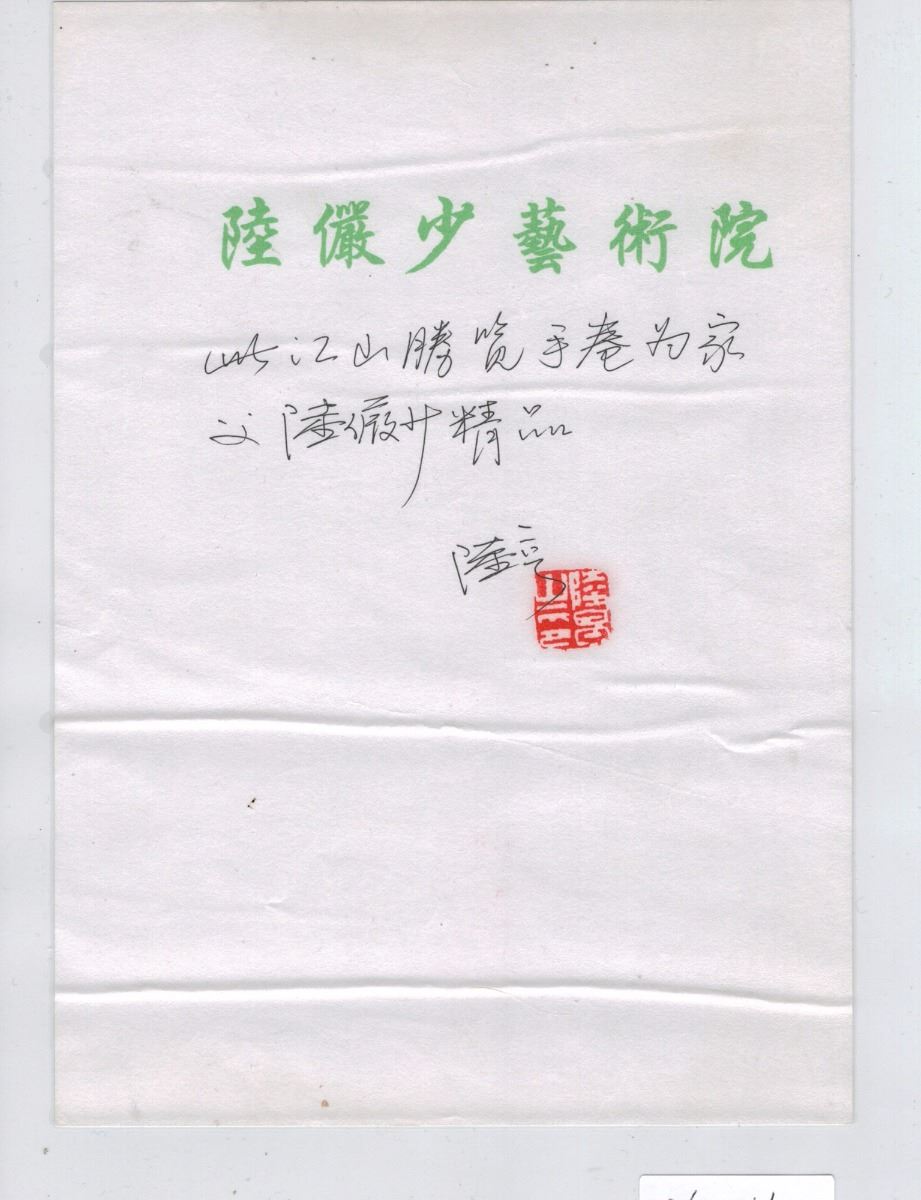 陸儼少藝術院
此江山勝览手卷为家
父陸儼少精品
陸亨